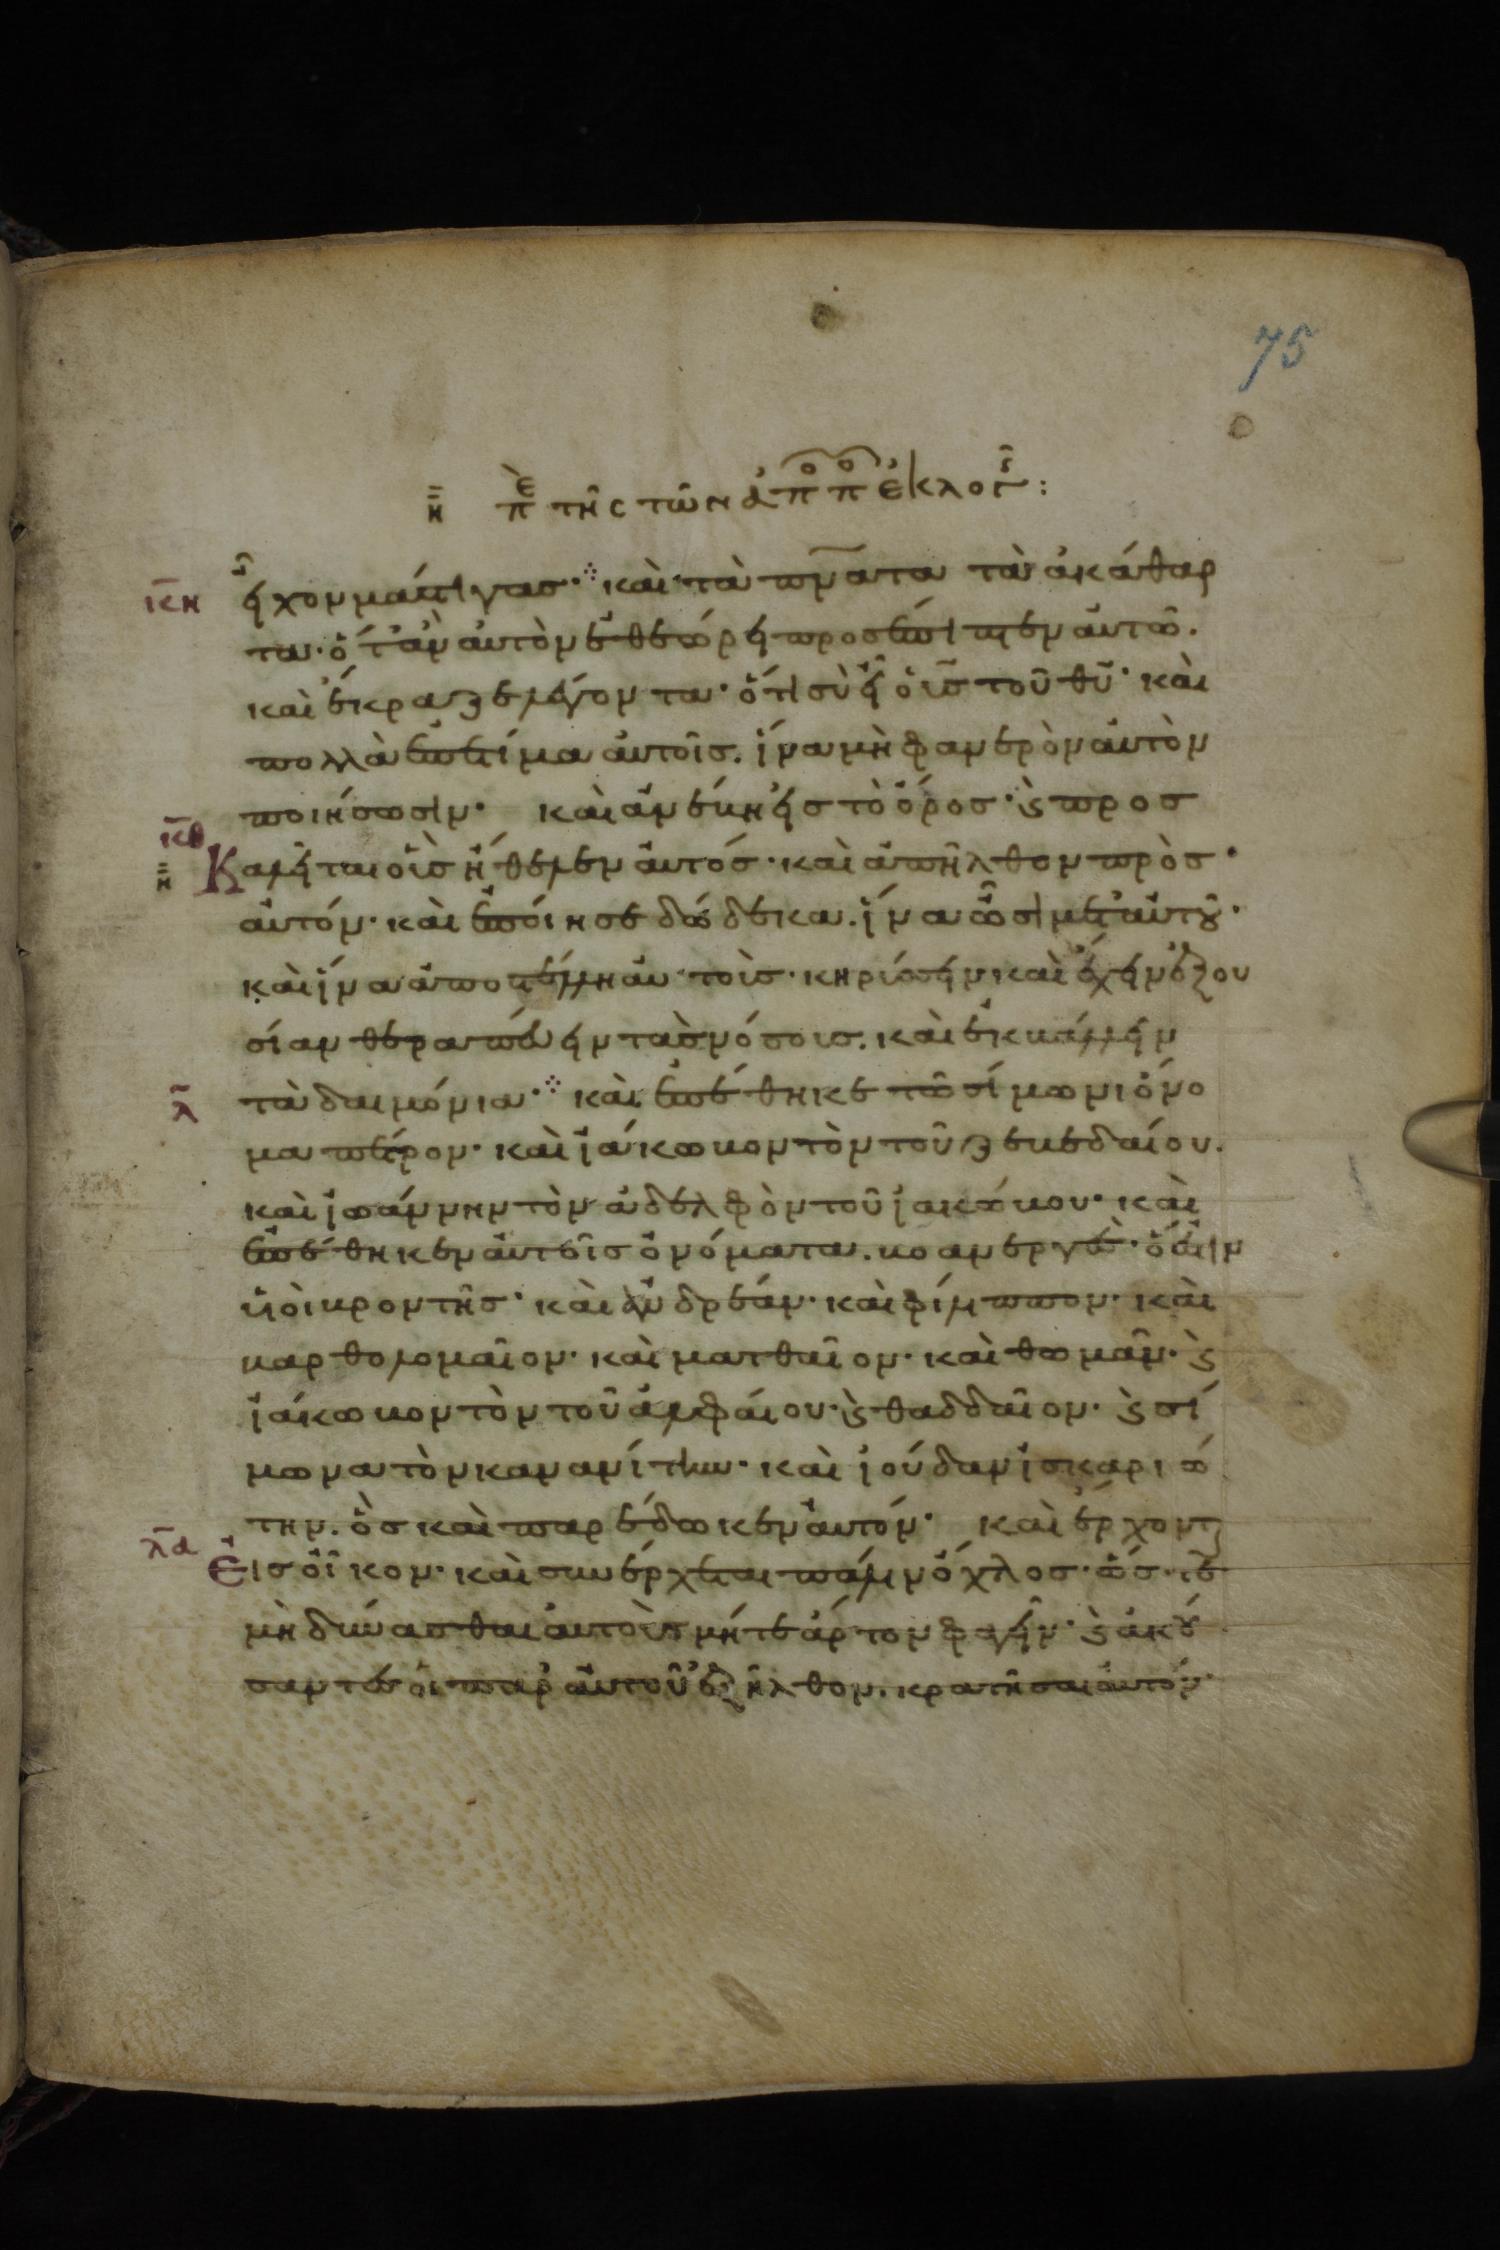 75
η πε της τῶν ἀπ̊π̊ ἐκλογῆς:
κη εἶχον μάστιγας· καὶ τὰ πν̅ατα τὰ ἀκάθαρ
τα· ὅτ' ἂν αὐτὸν ἐθεώρει προσέπιπτεν αὐτῶ.
καὶ ἔκραζε λέγοντα· ὅτι σὺ εἶ ὁ υ̅ς τοῦ θυ̅· καὶ
πολλὰ ἐπετίμα αὐτοῖς. ἵνα μὴ φανερὸν αὐτὸν
ποιήσωσιν· καὶ ἀνέβη εἰς τὸ ὄρος· ϗ προσ
κθ
η Καλεῖται οὓς ἤθελεν αὐτός· καὶ ἀπῆλθον πρὸς
αὐτόν· καὶ ἐποίησε δώδεκα. ἵνα ὦσι μετ' αὐτοῦ·
καὶ ἵνα ἀποστέλλη αὐτοὺς· κηρύσσειν καὶ ἔχειν ἐξου
σίαν θεραπεύειν τὰς νόσους. καὶ ἐκβάλλειν
λ τὰ δαιμόνια· καὶ ἐπέθηκε τῶ σίμωνι ὄνο
μα πέτρον· καὶ ἰάκωβον τὸν τοῦ ζεβεδαίου.
καὶ ἰωάννην τὸν ἀδελφὸν τοῦ ἰακώβου· καὶ
ἐπέθηκεν αὐτοῖς ὀνόματα. βοανεργὲς· ὅ ἐστιν
υἱοὶ βροντῆς· καὶ ἀνδρέαν· καὶ φίλιππον· καὶ
βαρθολομαῖον· καὶ ματθαῖον· καὶ θωμᾶν· ϗ
ἰάκωβον τὸν τοῦ ἀλφαίου· ϗ θαδδαῖον· ϗ σί
μωνα τὸν κανανίτην· καὶ ἰούδαν ἰσκαριώ
την. ὃς καὶ παρέδωκεν αὐτόν· καὶ ἔρχοντ
λα Εἰς οἶκον· καὶ συνέρχεται πάλιν ὄχλος· ὥσ·τε
μὴ δύνασθαι αὐτοὺς μήτε ἄρτον φαγεῖν· ϗ ἀκού
σαντες οἱ παρ' αὐτοῦ ἐξῆλθον. κρατῆσαι αὐτόν·